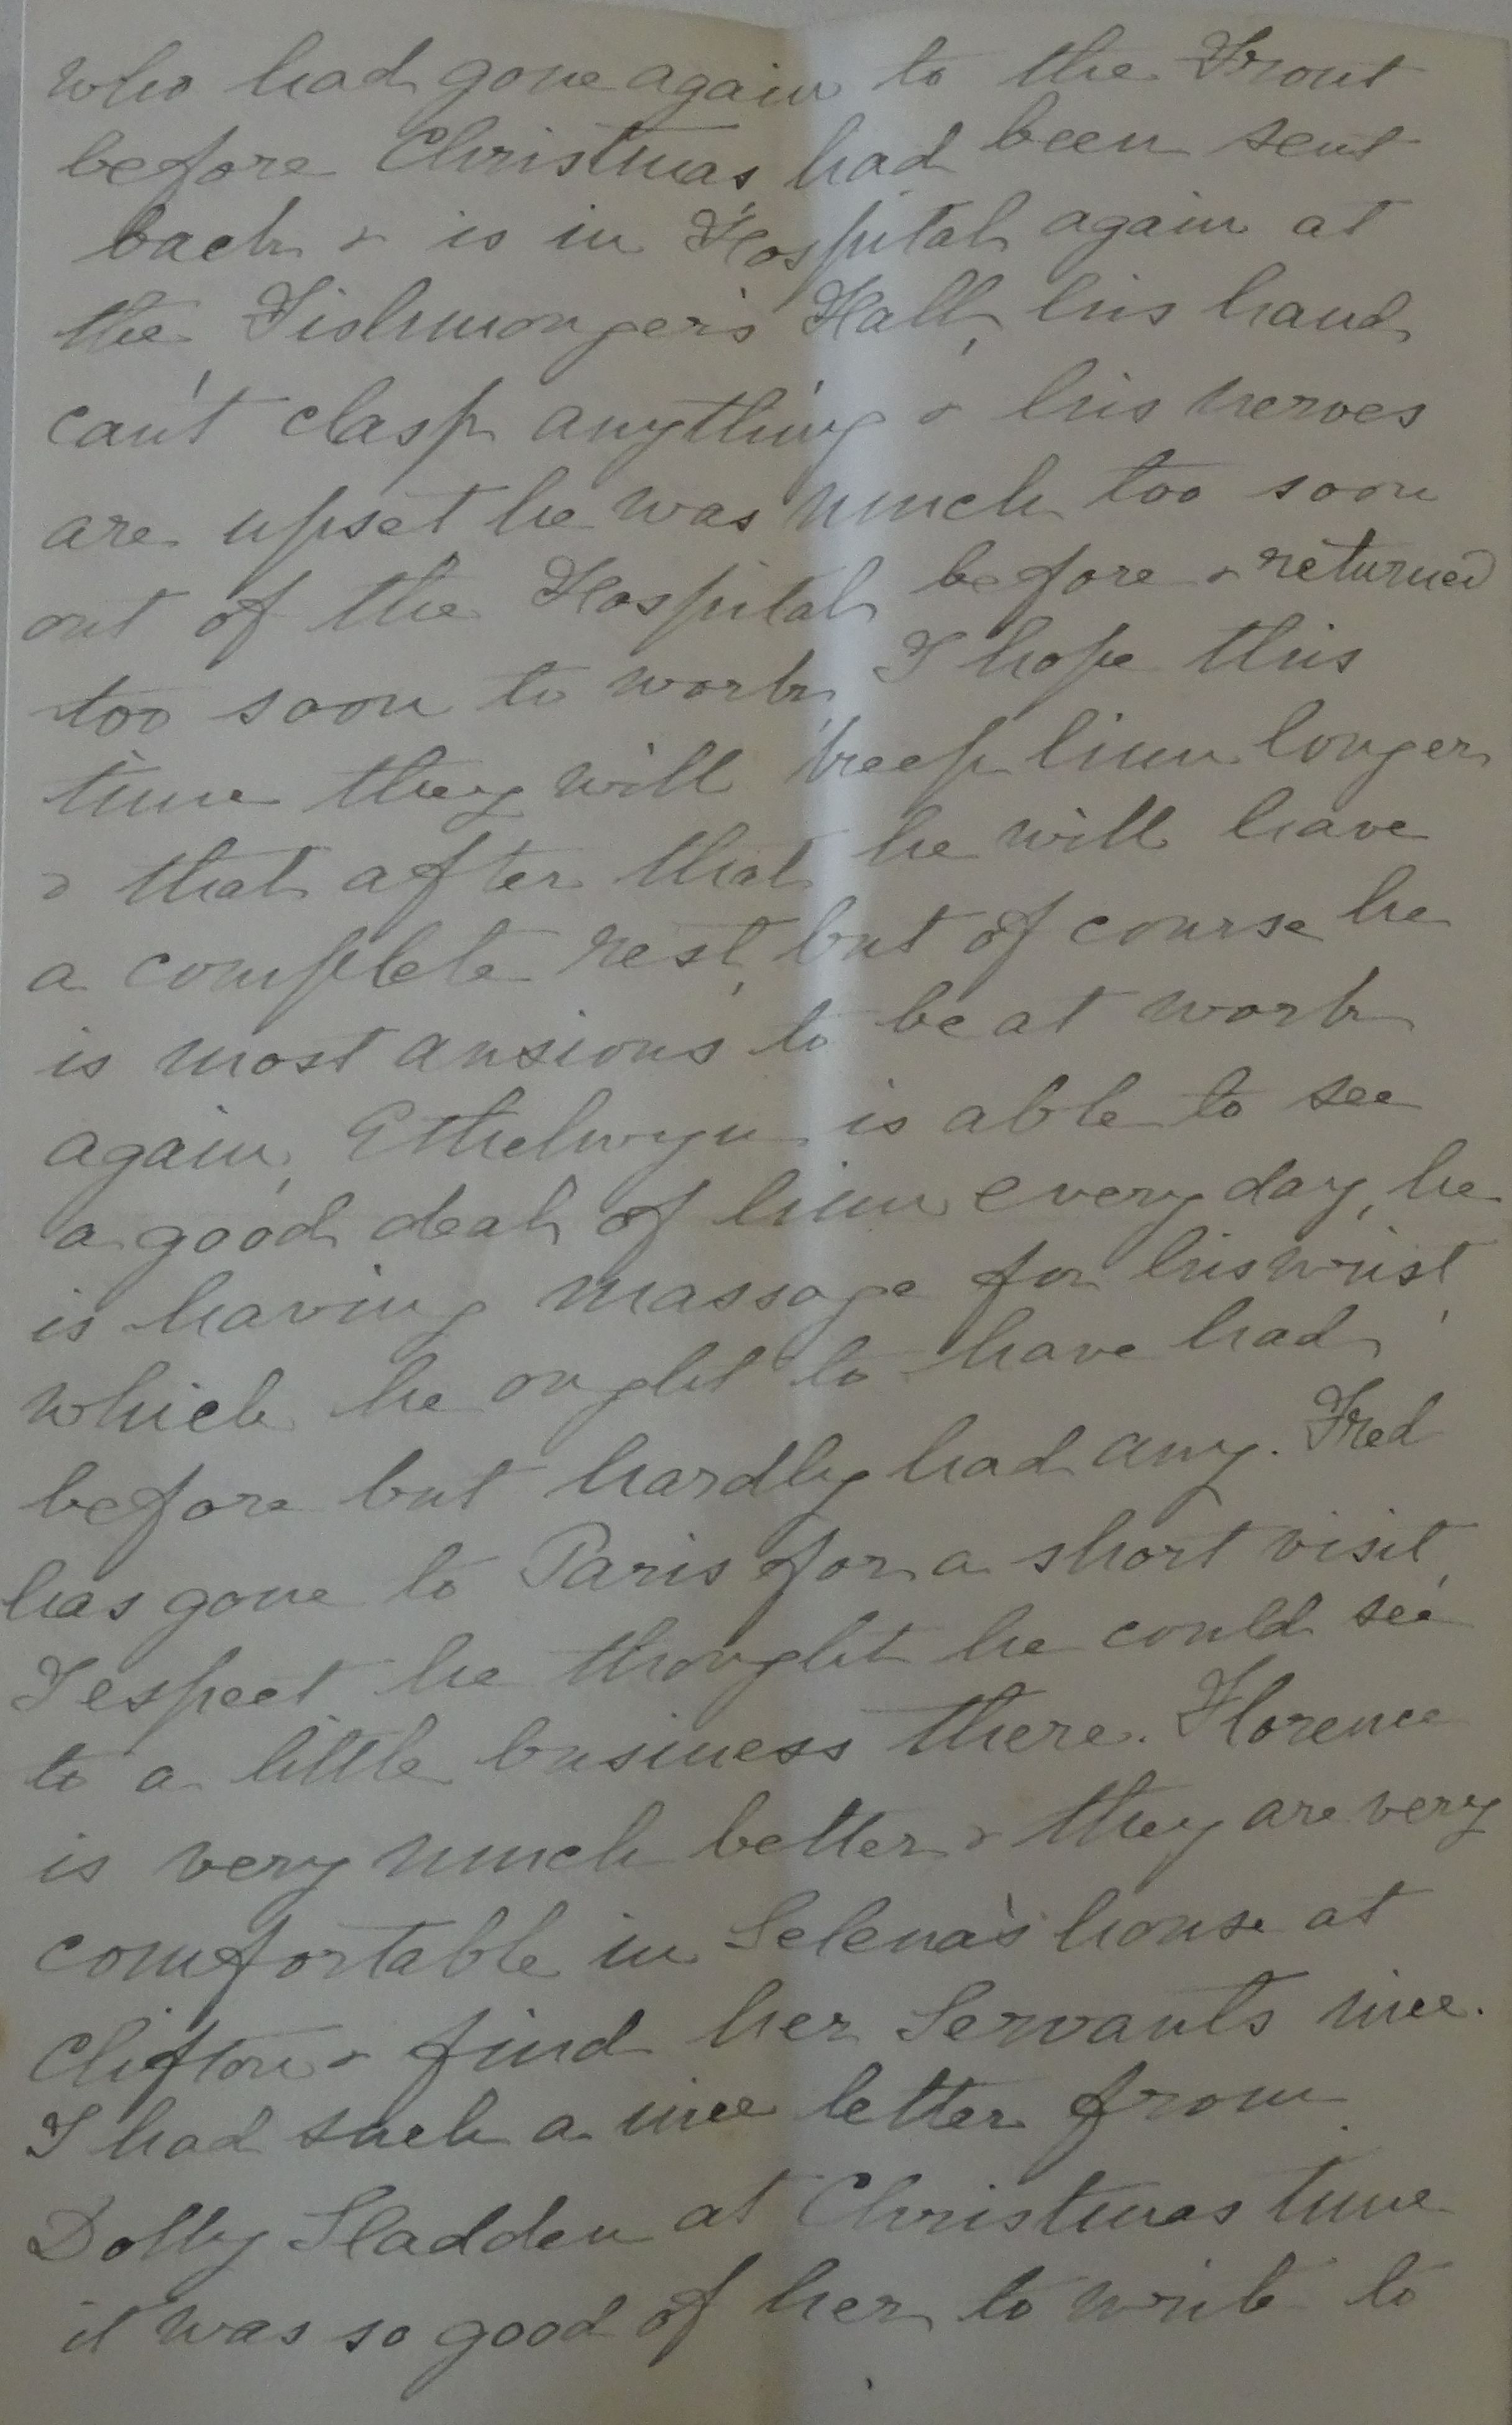 who had gone again to the Front
before Christmas, had been sent
back & is in Hospital again at
the Fishmonger's Hall, his hand
can't clasp anything & his nerves
are upset he was much too soon
out of the Hospital before & returned
too soon to work, I hope this
time they will keep him longer
& that after that he will have
a complete rest, but of course he
is most anxious to be at work
again, Ethelwyn is able to see
a good deal of him every day, he
is having massage for his wrist,
which he ought to have had
before but hardly had any. Fred
has gone to Paris for a short visit,
I expect he thought he could see
to a little business there. Florence
is very much better & they are very
comfortable in Selena's house at
Clifton & find her Servants nice.
I had such a nice letter from
Dolly Sladden at Christmas time
it was so good of her to write to